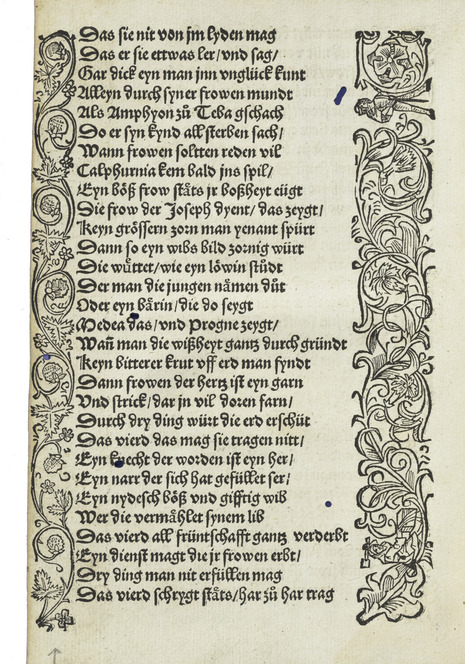 Das sie nit von jm lyden mag
Das er sie ettwas ler/vnd sag/
Gar dick eyn man jnn vnglück kunt
Alleyn durch syner frowen mundt
Als Amphyon zů Teba gschach
Do er syn kynd all sterben sach/
Wann frowen soltten reden vil
Calphurnia kem bald jns spil/
Eyn böß frow stäts jr boßheyt eügt
Die frow der Joseph dyent/das zeygt/
Keyn grössern zorn man yenant spürt
Dann so eyn wibs bild zornig würt
Die wüttet/wie eyn löwin stůdt
Der man die jungen nämen důt
Oder eyn bärin/die do seygt
Medea das/vnd Progne zeygt/
Wañ man die wißheyt gantz durch gründt
Keyn bitterer krut vff erd man fyndt
Dann frowen der hertz ist eyn garn
Vnd strick/dar jn vil doren farn/
Durch dry ding würt die erd erschüt
Das vierd das mag sie tragen nitt/
Eyn knecht der worden ist eyn her/
Eyn narr der sich hat gefüllet ser/
Eyn nydesch böß vnd gifftig wib
Wer die vermählet synem lib
Das vierd all früntschafft gantz verderbt
Eyn dienst magt die jr frowen erbt/
Dry ding man nit erfüllen mag
Das vierd schrygt stäts/har zů har trag